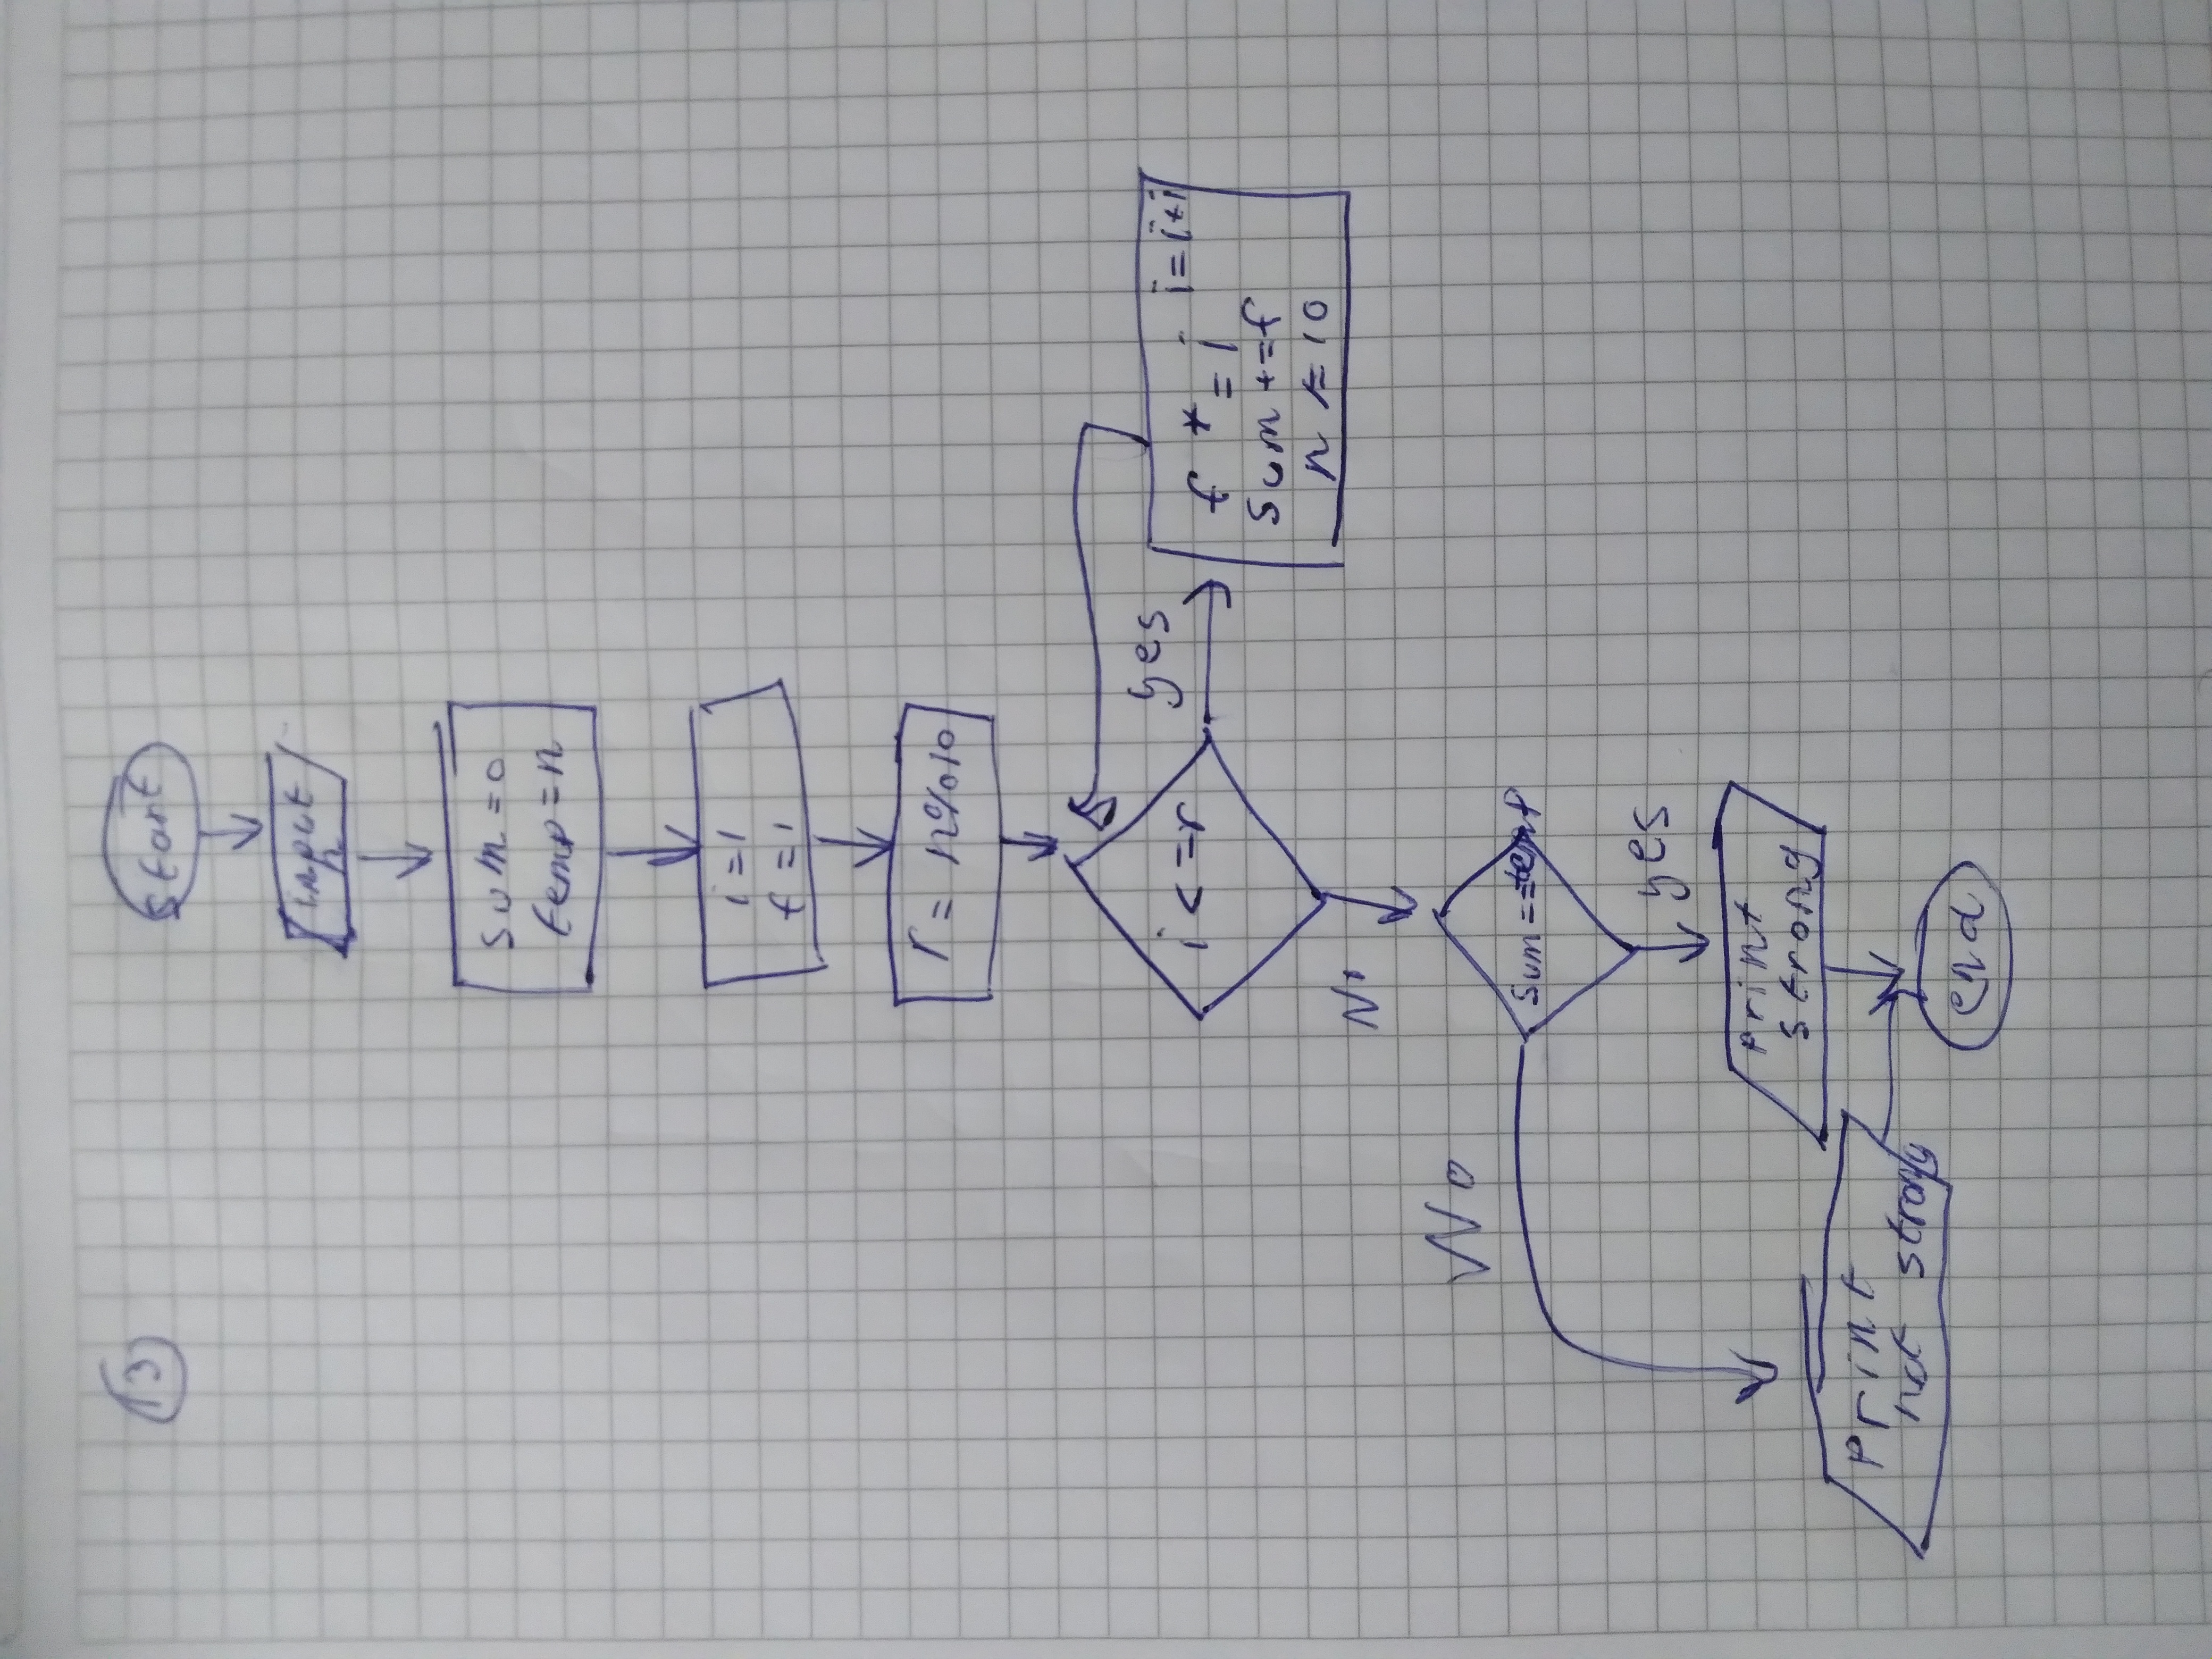 13
start
input
n
sum = 0
temp = n
i = 1
f = 1
r = n%10
i <= r
yes
i = i+i
f *= i
sum += f
n /= 10
No
No
sum == temp
yes
print
strong
print
not strong
end